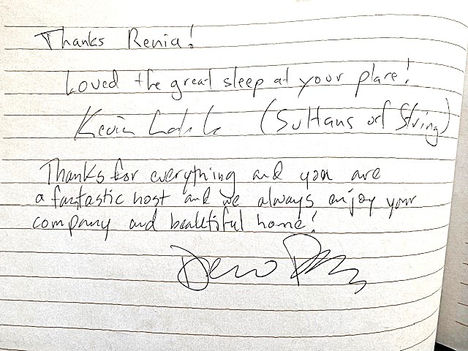 Thanks Renia!
Loved the great sleep at your place!
Kevin (Sultans of String)
Thanks for everything and you are
a fantastic host and we always enjoy your
company and beautiful home!